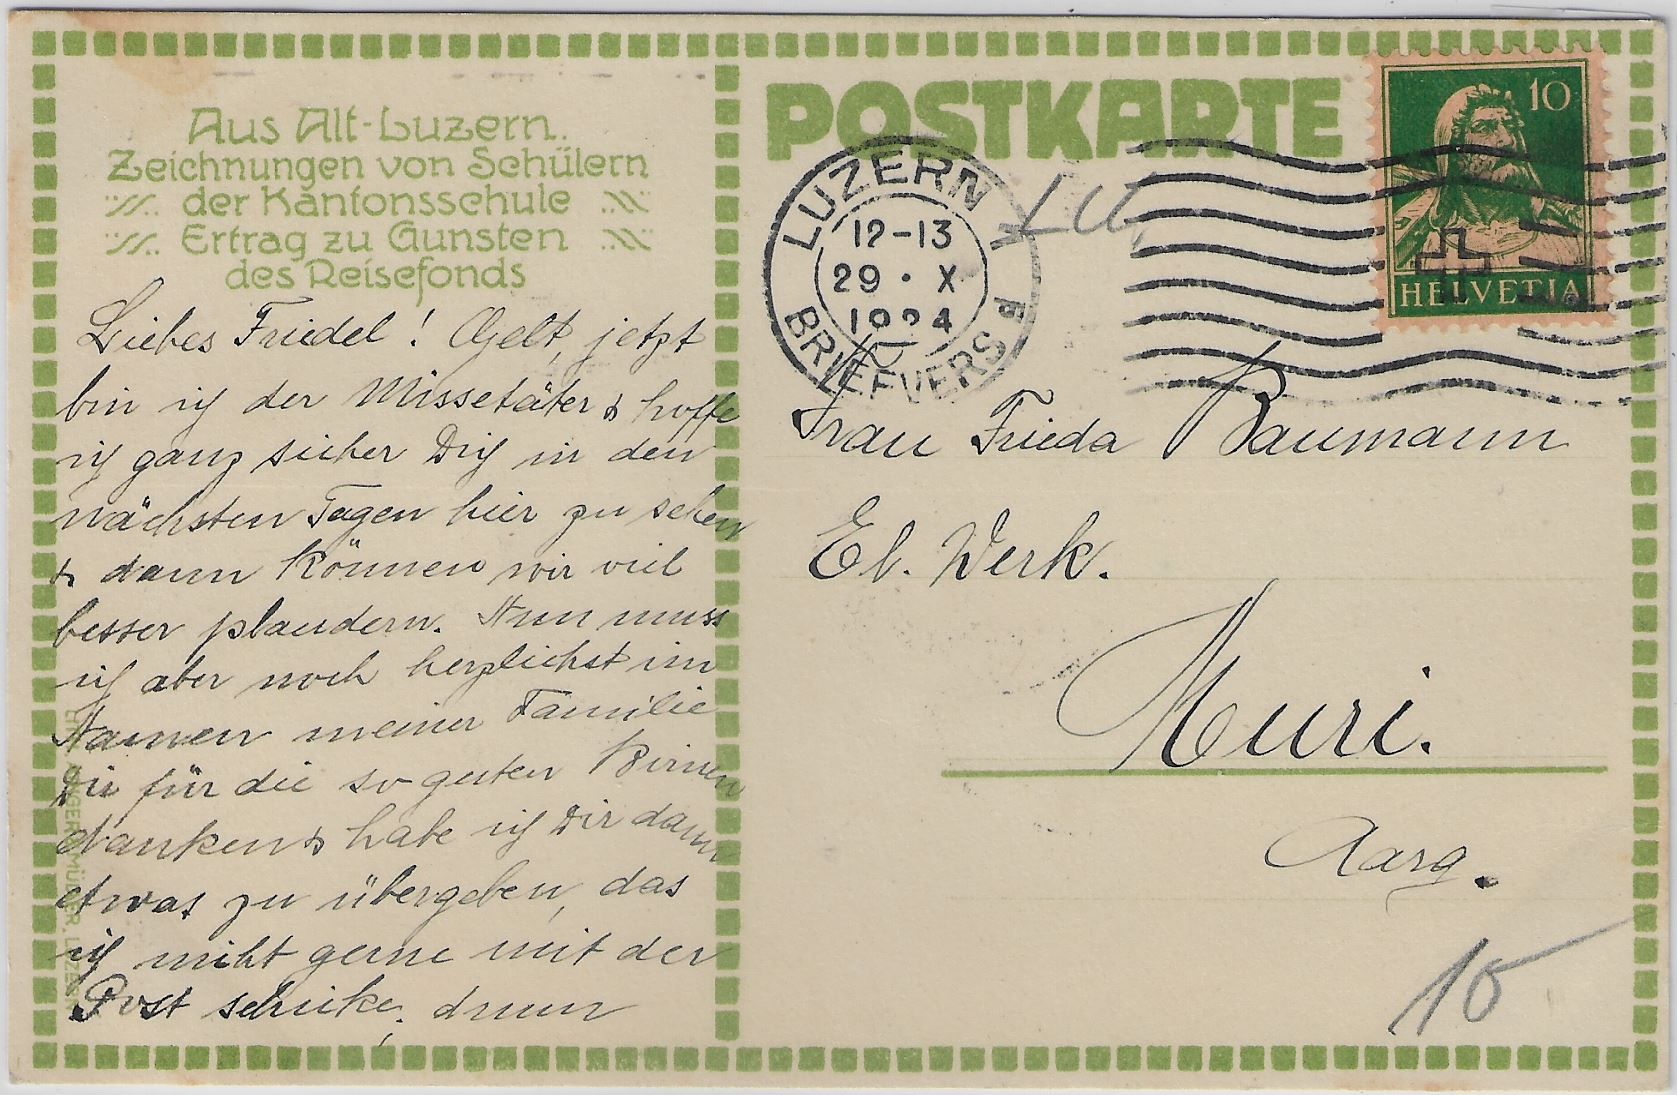 Aus Alt-Luzern.
Zeichnungen von Schülern
der Kantonsschule
Ertrag zu Gunsten
des Reisefonds
Liebes Friedel! Gelt, jetzt
bin ich der Missetäter & hoffe
ich ganz sicher Dich in den
nächsten Tagen hier zu sehen
& dann können wir viel
besser plaudern. Nun muss
ich aber noch herzlichst im
Namen meiner Familie
Dir für die so guten Birnen
danken & habe ich Dir dann
etwas zu übergeben, das
ich nicht gerne mit der
Post schicke, drum
MÜLLER, LUZERN
POSTKARTE
LUZERN
12-13
29·X
1924
BRIEFVERS
10
HELVETIA
Frau Frieda Baumann
El. Werk.
Muri.
Aarg.
10